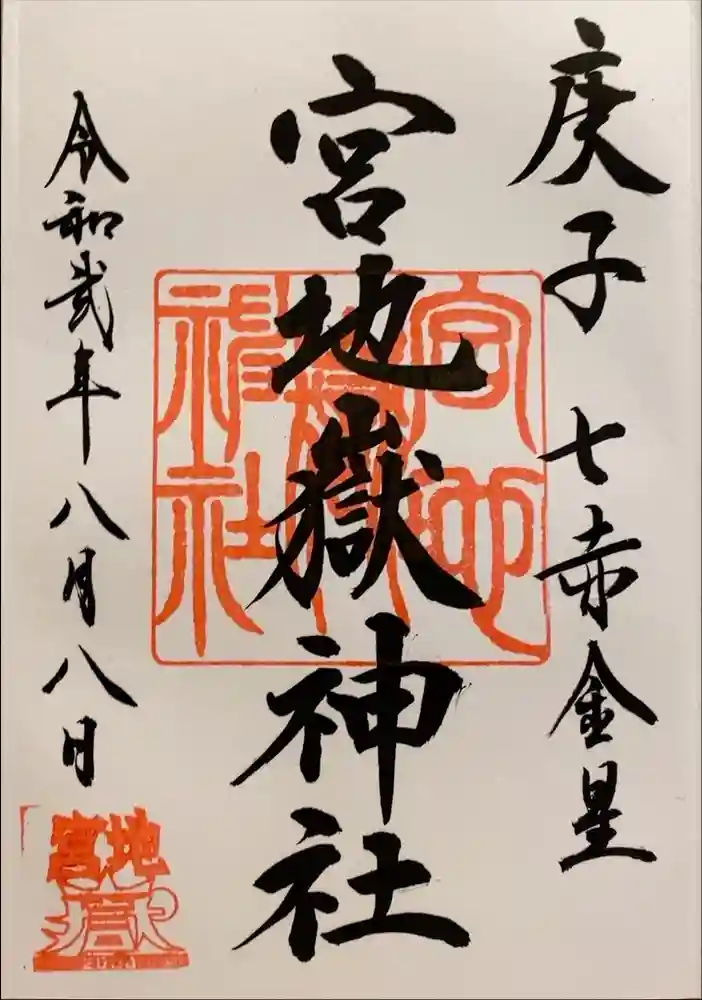 庚子 七赤金星
宮地嶽神社
令和貳年八月八日
宮地嶽神社
宮地
嶽